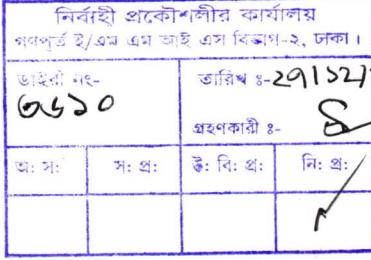 নির্বাহী প্রকৌশলীর কার্যালয়
গণপূর্ত ই/এম এম আই এস বিভাগ-২, ঢাকা।
ডাইরী নং- তারিখ ঃ-
৩৬১০
গ্রহণকারী ঃ-
অ: স: স: প্র: উ: বি: প্র: নি: প্র: